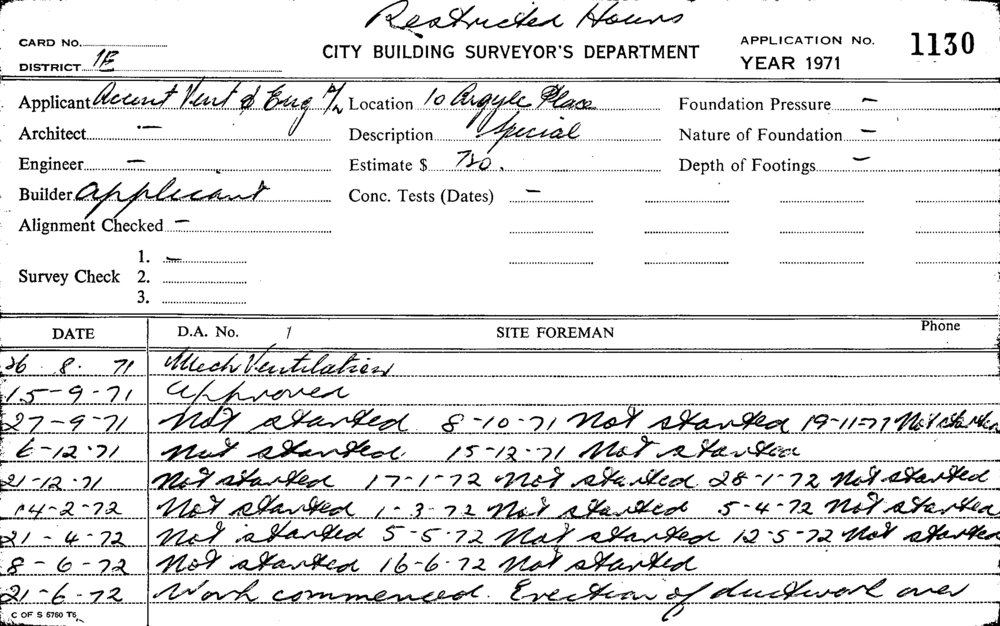 Restricted Hours
CARD No. CITY BUILDING SURVEYOR'S DEPARTMENT APPLICATION No. 1130
DISTRICT 1E YEAR 1971
Applicant Accent Vent & Eng P/L Location 10 Argyle Place Foundation Pressure –
Architect – Description Special Nature of Foundation –
Engineer – Estimate $ 780. Depth of Footings –
Builder Applicant Conc. Tests (Dates) –
Alignment Checked –
1. –
Survey Check 2.
3.
DATE D.A. No. 1 SITE FOREMAN Phone
26 . 8 . 71 Mech Ventilation
15-9-71 Approved
27-9-71 Not started 8-10-71 Not started 19-11-71 Not started
6-12-71 Not started 15-12-71 Not started
21-12-71 Not started 17-1-72 Not started 28-1-72 Not started
14-2-72 Not started 1-3-72 Not started 5-4-72 Not started
21-4-72 Not started 5-5-72 Not started 12-5-72 Not started
8-6-72 Not started 16-6-72 Not started
21-6-72 Work commenced. Erection of ductwork over
C OF S 5760 T6